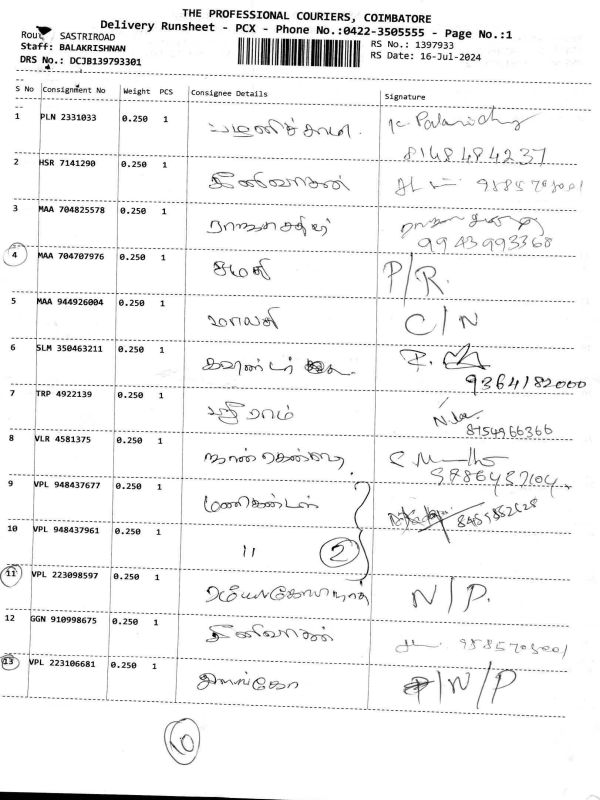 THE PROFESSIONAL COURIERS, COIMBATORE
Delivery Runsheet - PCX - Phone No.:0422-3505555 - Page No.:1
SASTRIROAD
RS No.: 1397933
Staff: BALAKRISHNAN
RS Date: 16-Jul-2024
DRS No.: DCJB139793301
S No Consignment No Weight PCS Consignee Details Signature
1 PLN 2331033 0.250 1 பழனிச்சாமி
8148484237
2 HSR 7141290 0.250 1 சீனிவாசன் 9885705001
3 MAA 704825578 0.250 1
9943993368
4 MAA 704707976 0.250 1 P/R.
5 MAA 944926004 0.250 1 மாலதி C/N
6 SLM 350463211 0.250 1
9364182000
7 TRP 4922139 0.250 1 ஸ்ரீ ராம்
8754966366
8 VLR 4581375 0.250 1
9786437104
9 VPL 948437677 0.250 1 மணிகண்டன்
10 VPL 948437961 0.250 1 11 2
11 VPL 223098597 0.250 1 N/P.
12 GGN 910998675 0.250 1 சீனிவாசன் 9885705001
13 VPL 223106681 0.250 1 இளங்கோ N/P
10